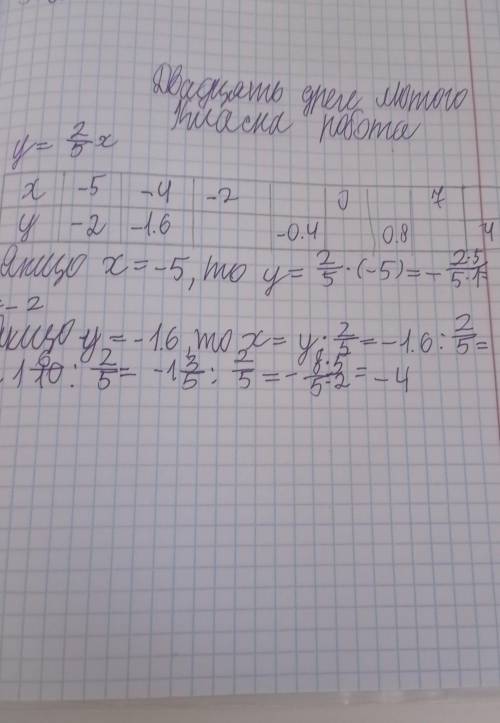 Двадцять друге лютого
Класна робота
y = 2/5 x
x -5 -4 -2 0 7
y -2 -1.6 -0.4 0.8 4
Якщо x = -5, то y = 2/5 · (-5) = - 2·5/5·1 =
= - 2
Якщо y = -1.6, то x = y : 2/5 = -1.6 : 2/5 =
- 1 6/10 : 2/5 = -1 3/5 : 2/5 = - 8·5/5·2 = -4